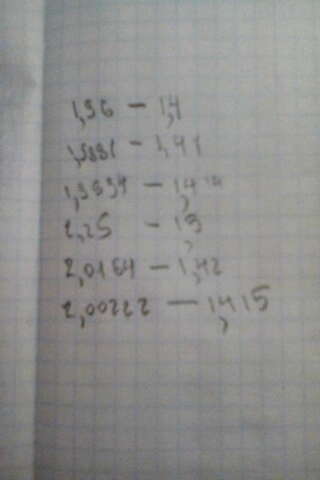 1,96 — 1,4
1,9881 - 1,41
1,9994 — 1,414
2,25 - 1,5
2,0164 — 1,42
2,00222 — 1,415